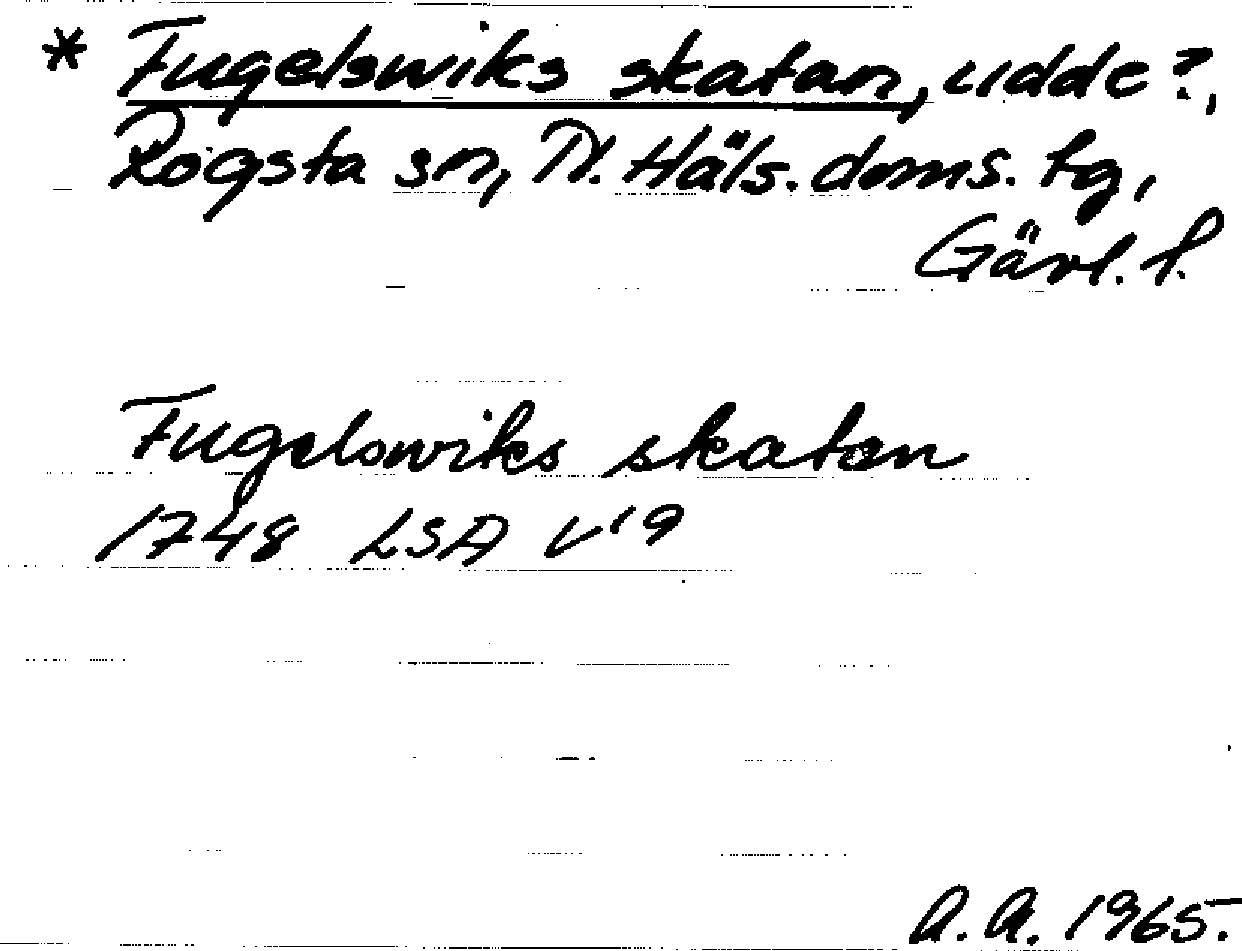 * Fugelswiks skatan, udde?,
Rogsta sn, N. Häls. doms. tg,
Gävl. l.
Fugelswiks skatan
1748 LSA V¹9
A. A. 1965.